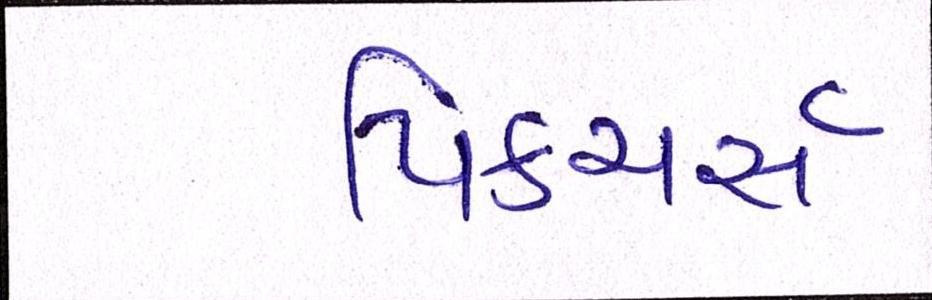 પિકચર્સ